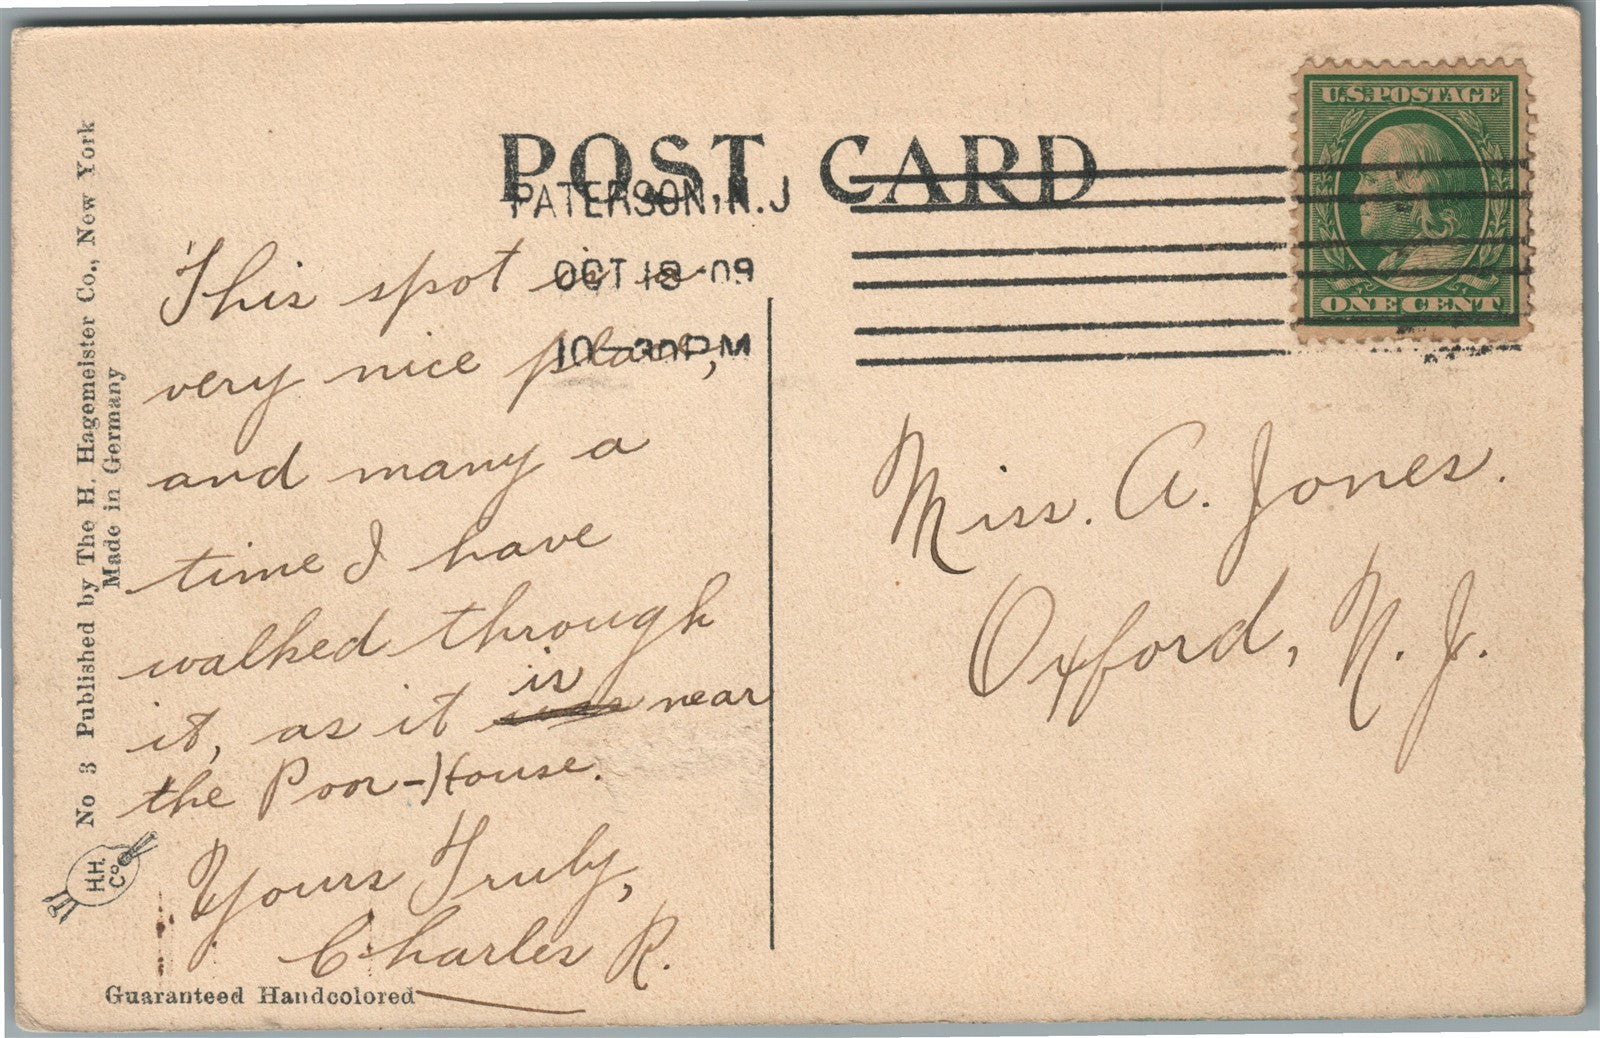 POST CARD
PATERSON, N.J
OCT 18 '09
10-30PM
U.S. POSTAGE
ONE CENT
This spot is a
very nice place,
and many a
time I have
walked through
it, as it is near
the Poor-House.
Yours Truly,
Charles R.
Miss. A. Jones.
Oxford, N. J.
No 3 Published by The H. Hagemeister Co., New York
Made in Germany
H.H. Co
Guaranteed Handcolored